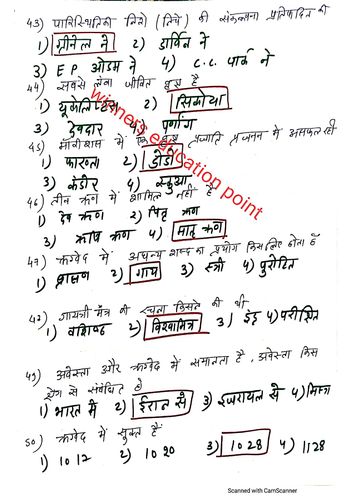 43) पारिस्थितिकी निचे (निचे) की संकल्पना प्रतिपादित की
1) ग्रीनेल ने 2) डार्विन ने
3) E P ओडम ने 4) C.C. पार्क ने
44) सबसे लंबा जीवित वृक्ष है
1) यूकेलिप्टस 2) सिकोया
3) देवदार 4) पर्णांग
45) मारीशस में एक वृक्ष प्रजाति प्रजनन में असफल रही
1) फाख्ता 2) डोडो
3) कंडीर 4) स्कुआ
46) तीन ऋण में शामिल नहीं है
1) देव ऋण 2) पितृ ऋण
3) ऋषि ऋण 4) मातृ ऋण
47) ऋग्वेद में अघन्य शब्द का प्रयोग किसलिए होता है
1) ब्राह्मण 2) गाय 3) स्त्री 4) पुरोहित
48) गायत्री मंत्र की रचना किसने की थी
1) वशिष्ठ 2) विश्वामित्र 3) इंद्र 4) परीक्षित
49) अवेस्ता और ऋग्वेद में समानता है, अवेस्ता किस
क्षेत्र से संबंधित है
1) भारत से 2) ईरान से 3) इजरायल से 4) मिस्र
50) ऋग्वेद में सूक्त है
1) 1012 2) 1020 3) 1028 4) 1128
winners education point
Scanned with CamScanner